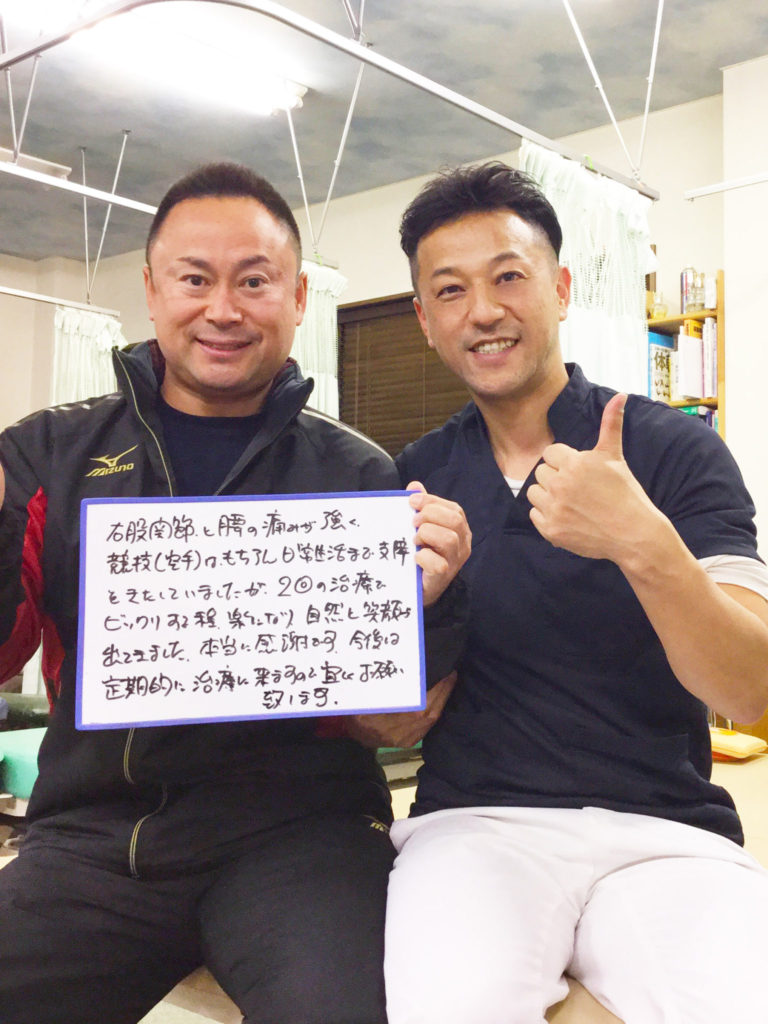 MIZUNO
右股関節と腰の痛みが強く、
競技(空手)はもちろん日常生活まで支障
をきたしていましたが、2回の治療で
ビックリする程、楽になり自然と笑顔が
出てきました。本当に感謝です。今後は
定期的に治療に来ますので宜しくお願い
致します。